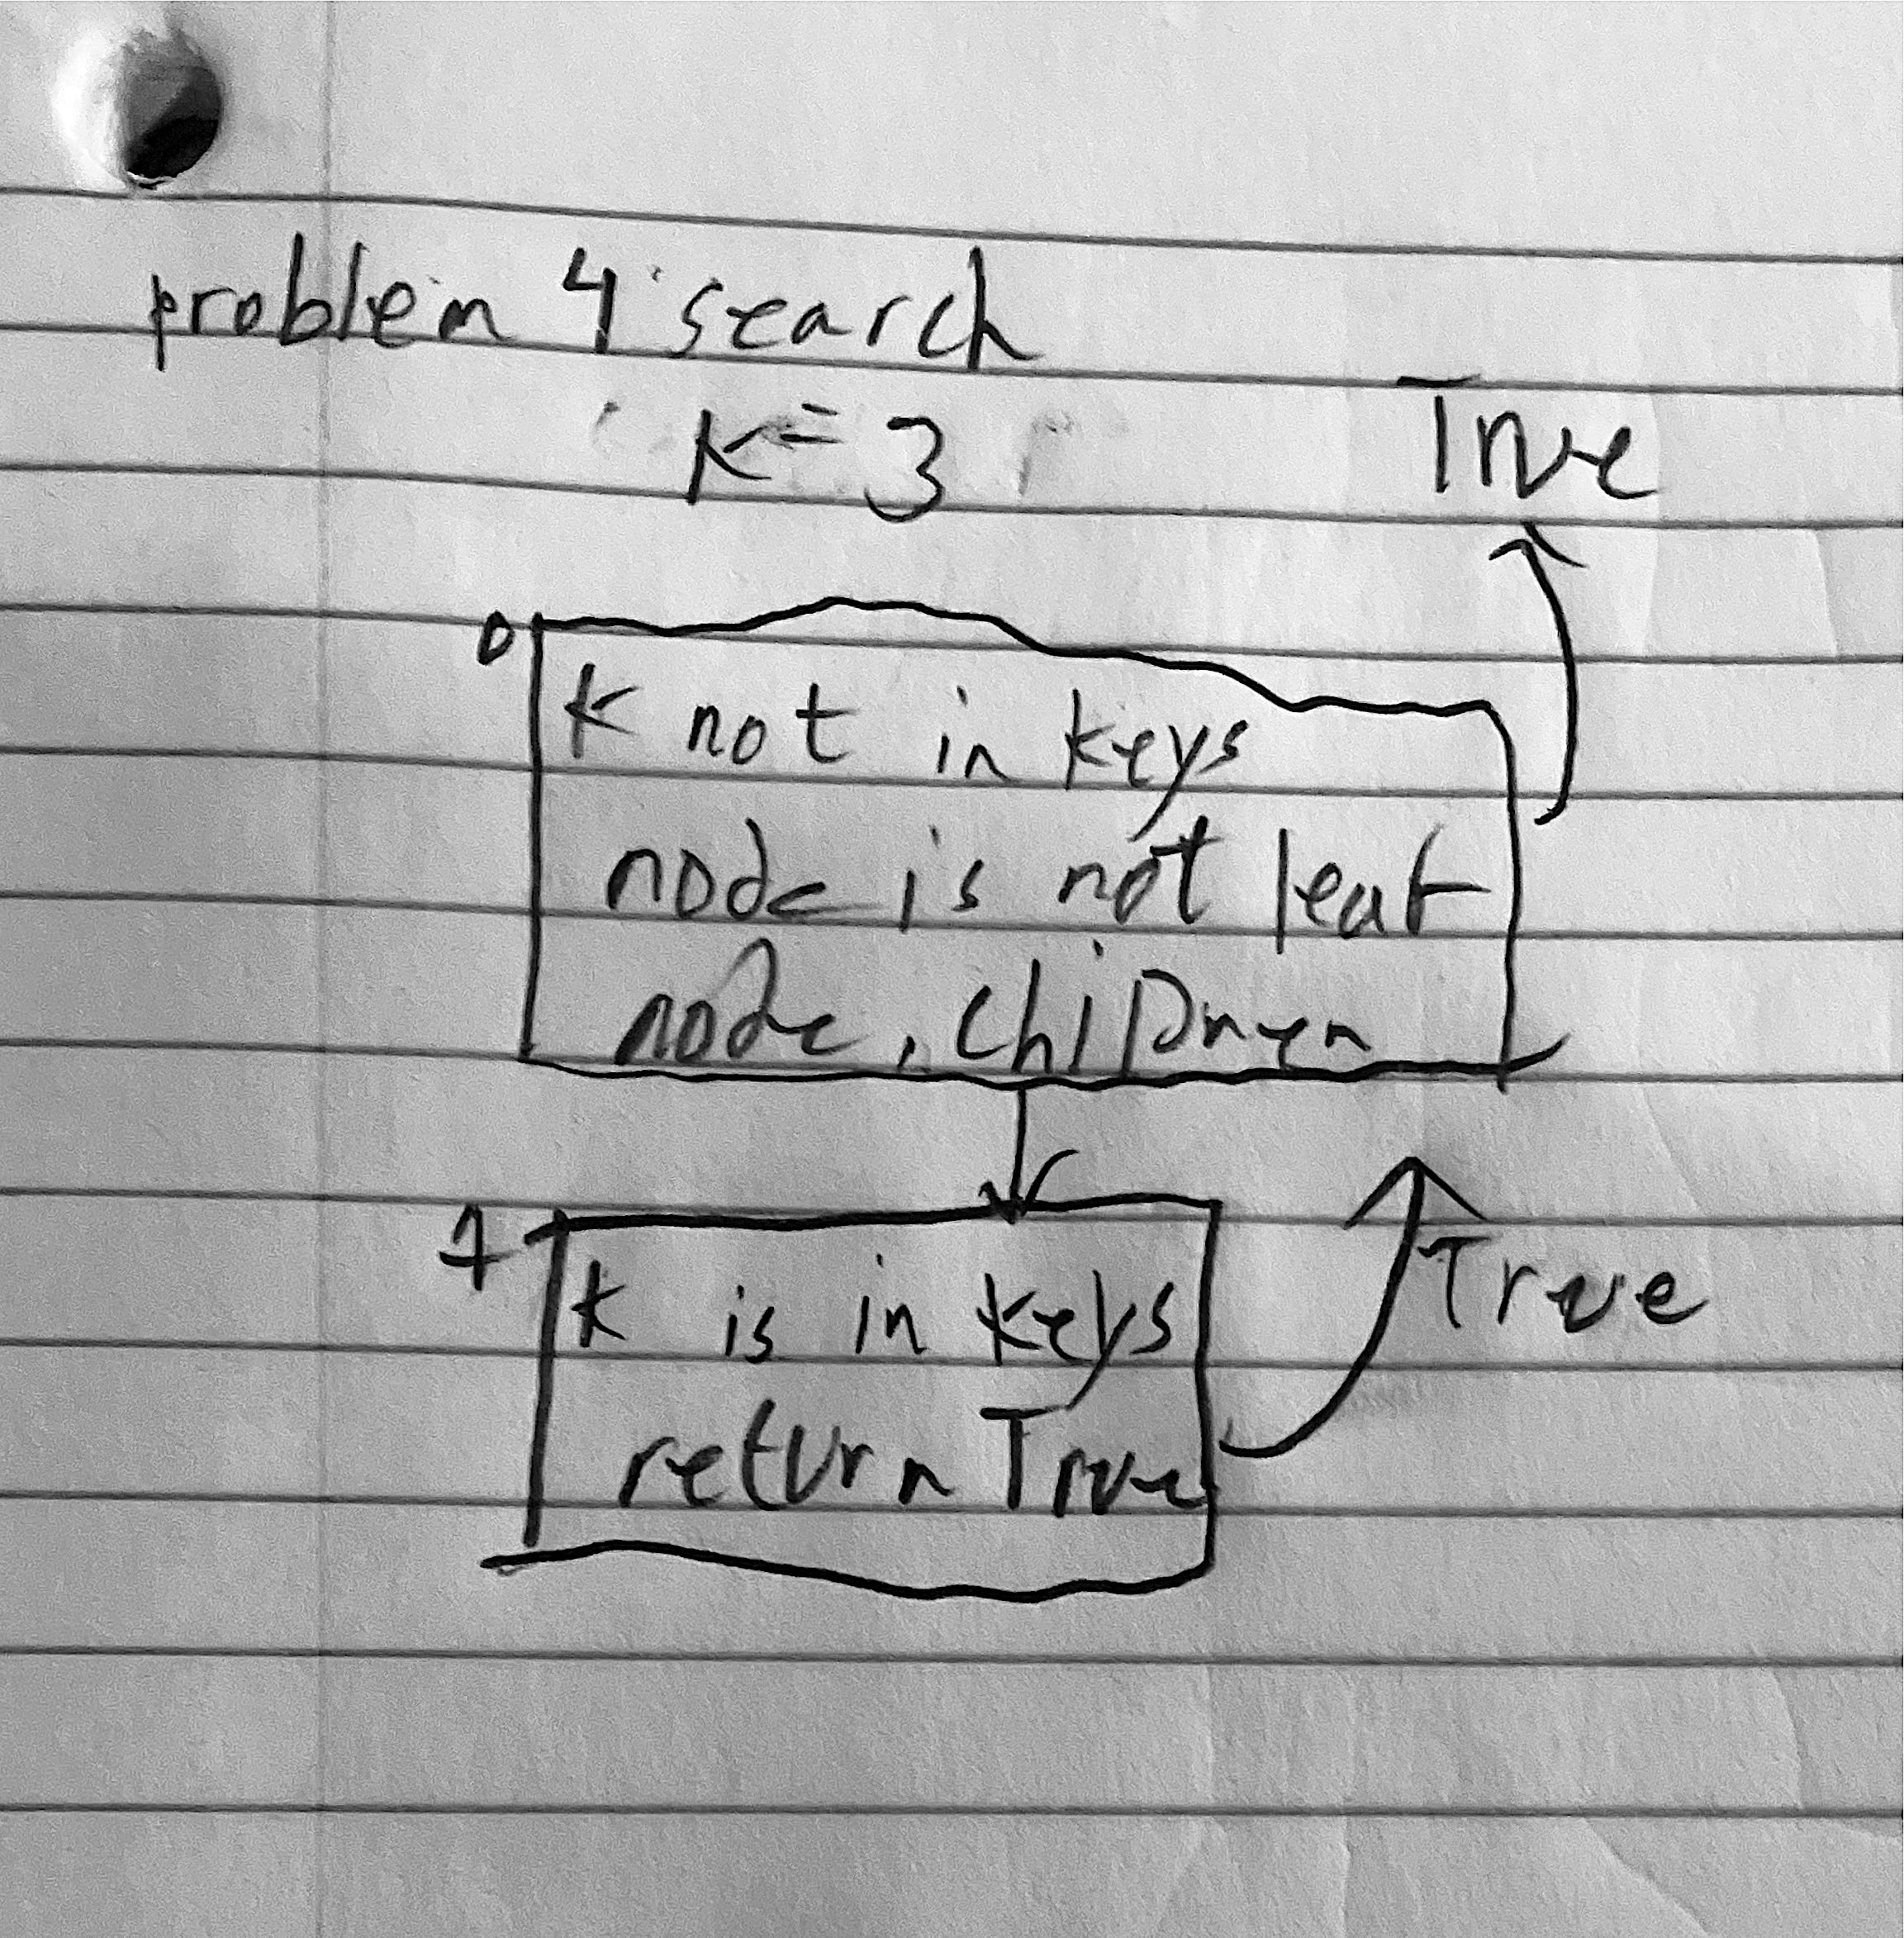 problem 4 search
K = 3
True
0
K not in keys
node is not leaf
node.children
1
K is in keys
return True
True